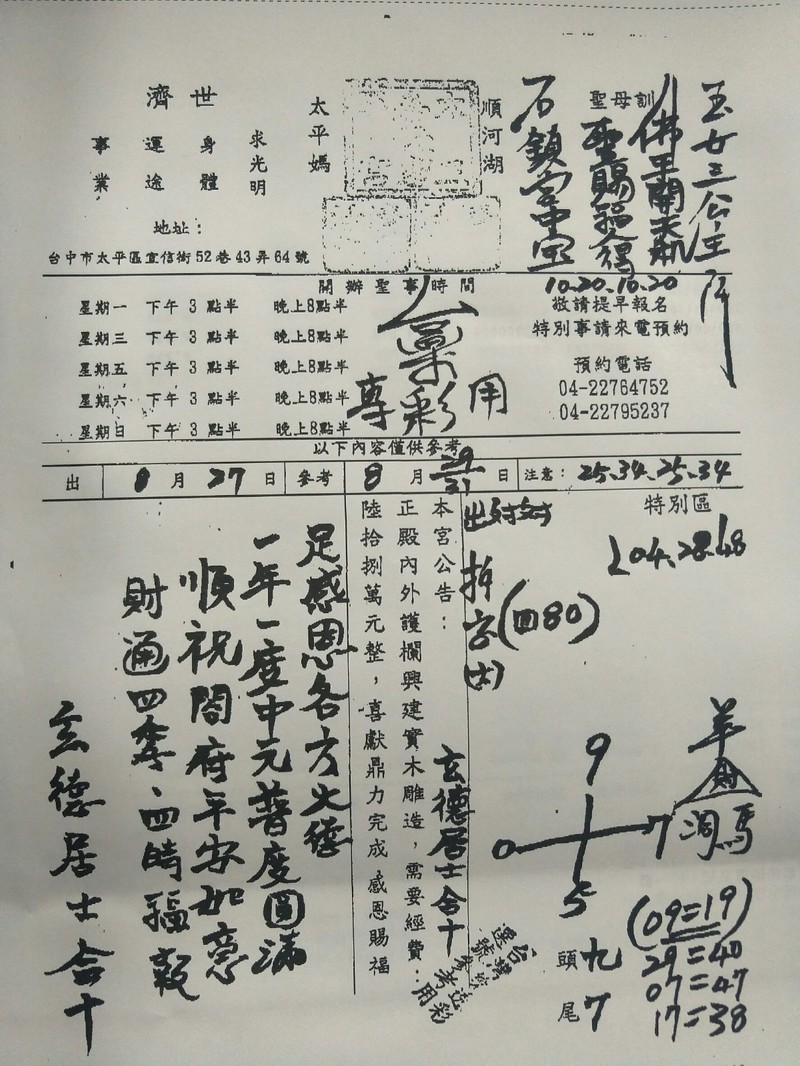 玉女三公主降
聖母訓
佛王開天機
聖賜福得
石鎖宮中寶
10.20.10.20
順河湖
太平媽
濟世
求光明
身體
運途
事業
地址：
台中市太平區宜信街52巷43弄64號
開辦聖事時間
星期一 下午3點半 晚上8點半
星期三 下午3點半 晚上8點半
星期五 下午3點半 晚上8點半
星期六 下午3點半 晚上8點半
星期日 下午3點半 晚上8點半
公
彩
專 用
敬請提早報名
特別事請來電預約
預約電話
04-22764752
04-22795237
以下內容僅供參考
出 8月27日 參考 8月29 31日 注意：25.34.25.34
特別區
04.28.48
出對対
拆字
(四80)
本宮公告：
正殿內外護欄興建實木雕造，需要經費：
陸拾捌萬元整，喜獻鼎力完成 感恩賜福
玄德居士合十
足感恩各方大德
一年一度中元普度圓滿
順祝閤府平安如意
財通四季 四時福報
玄德居士合十
9
0 7
5
羊
財
洞馬
頭九
尾7
(09=19)
29=40
07=47
17=38